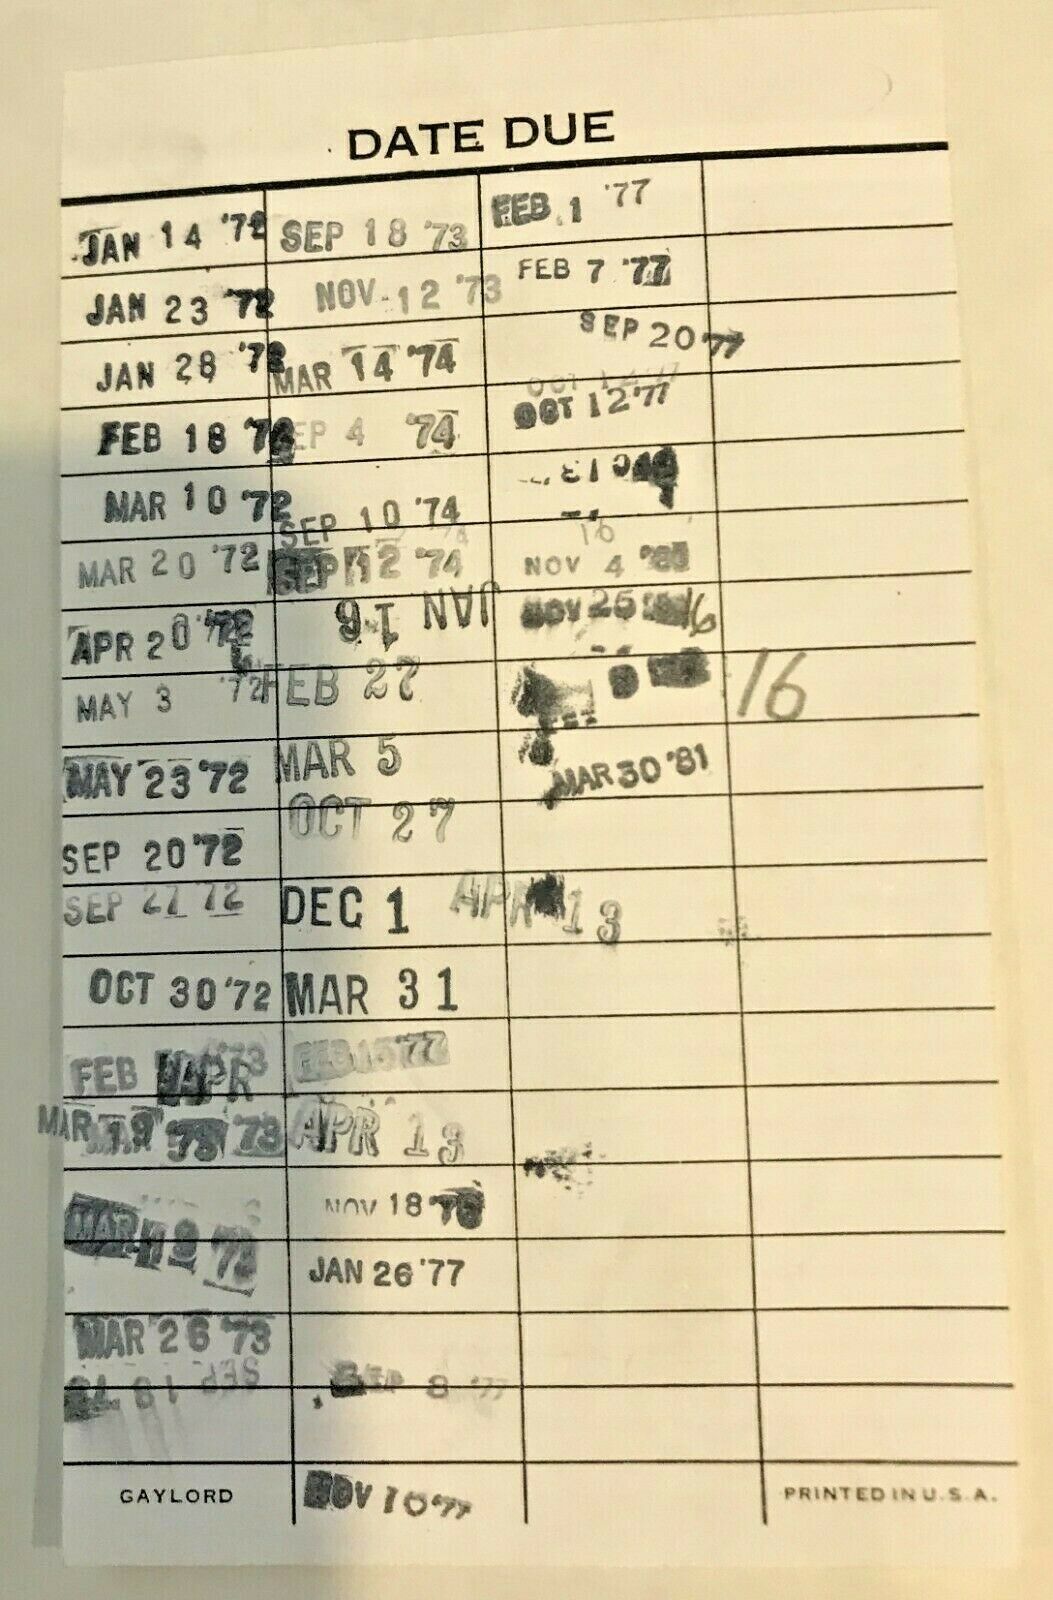 DATE DUE
JAN 14 '72
JAN 23 '72
JAN 28 '72
FEB 18 '72
MAR 10 '72
MAR 20 '72
APR 20 '72
MAY 3 '72
MAY 23 '72
SEP 20 '72
SEP 27 '72
OCT 30 '72
FEB '73
APR
MAR 19 '73
MAR 19 '73
MAR 26 '73
SEP 18 '73
SEP 18 '73
NOV 12 '73
MAR 14 '74
SEP 4 '74
SEP 10 '74
SEP 12 '74
JAN 16
FEB 27
MAR 5
OCT 27
DEC 1
MAR 31
FEB 15 '77
APR 13
NOV 18 '76
JAN 26 '77
SEP 8 '77
NOV 10 '77
FEB 1 '77
FEB 7 '77
SEP 20 '77
OCT 12 '77
OCT 12 '77
16
NOV 4 '80
NOV 25 16
16
MAR 30 '81
APR 13
GAYLORD
PRINTED IN U.S.A.